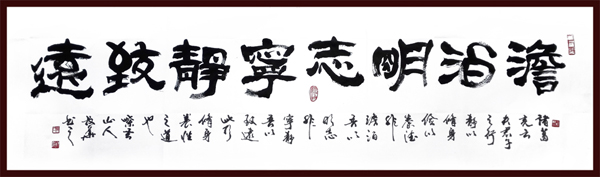 澹泊明志寧靜致遠
諸葛
亮云
夫君子
之行
靜以
修身
儉以
養德
非
澹泊
无以
明志
非
寧靜
无以
致遠
此乃
修身
養性
之道
也
山人
書之